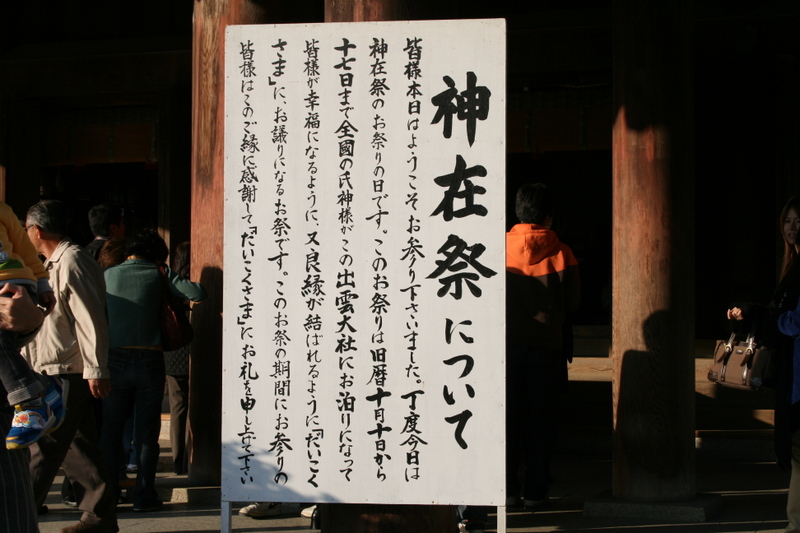 神在祭について
皆様本日はようこそお参り下さいました。丁度今日は
神在祭のお祭りの日です。このお祭りは旧暦十月十日から
十七日まで全國の氏神様がこの出雲大社にお泊りになって
皆様が幸福になるように、又良縁が結ばれるように『だいこく
さま』に、お議りになるお祭です。このお祭の期間にお参りの
皆様はこのご縁に感謝して『だいこくさま』にお礼を申し上げて下さい